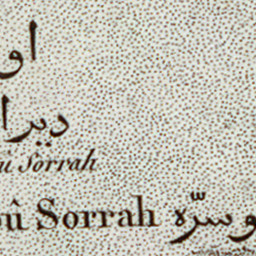 او
ديرا
û Sorrah
oû Sorrah وسرّه